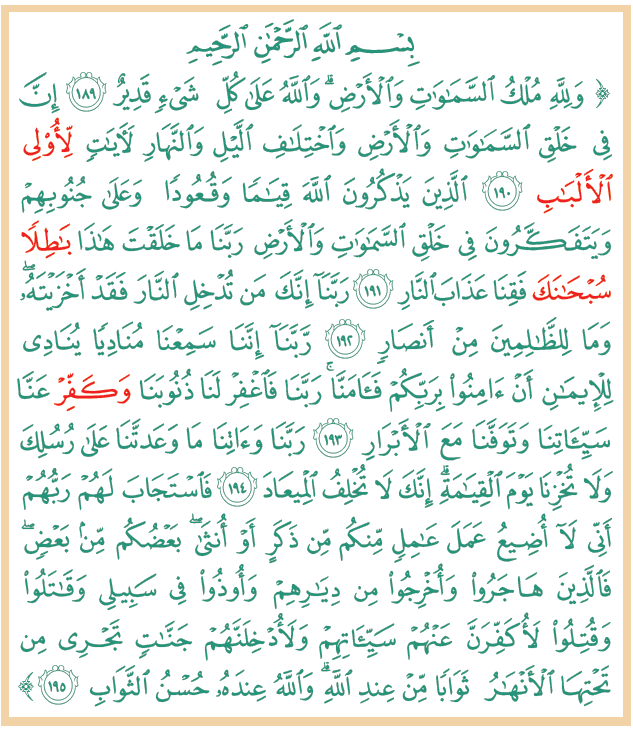 بِسْمِ اللَّهِ الرَّحْمَٰنِ الرَّحِيمِ
﴿ وَلِلَّهِ مُلْكُ السَّمَٰوَٰتِ وَالْأَرْضِ ۗ وَاللَّهُ عَلَىٰ كُلِّ شَيْءٍ قَدِيرٌ ١٨٩ إِنَّ
فِي خَلْقِ السَّمَٰوَٰتِ وَالْأَرْضِ وَاخْتِلَٰفِ الَّيْلِ وَالنَّهَارِ لَءَايَٰتٍ لِّأُو۟لِي
الْأَلْبَٰبِ ١٩٠ الَّذِينَ يَذْكُرُونَ اللَّهَ قِيَٰمًا وَقُعُودًا وَعَلَىٰ جُنُوبِهِمْ
وَيَتَفَكَّرُونَ فِي خَلْقِ السَّمَٰوَٰتِ وَالْأَرْضِ رَبَّنَا مَا خَلَقْتَ هَٰذَا بَٰطِلًا
سُبْحَٰنَكَ فَقِنَا عَذَابَ النَّارِ ١٩١ رَبَّنَآ إِنَّكَ مَن تُدْخِلِ النَّارَ فَقَدْ أَخْزَيْتَهُۥ ۖ
وَمَا لِلظَّٰلِمِينَ مِنْ أَنصَارٍ ١٩٢ رَّبَّنَآ إِنَّنَا سَمِعْنَا مُنَادِيًا يُنَادِي
لِلْإِيمَٰنِ أَنْ ءَامِنُوا۟ بِرَبِّكُمْ فَـَٔامَنَّا ۚ رَبَّنَا فَاغْفِرْ لَنَا ذُنُوبَنَا وَكَفِّرْ عَنَّا
سَيِّـَٔاتِنَا وَتَوَفَّنَا مَعَ الْأَبْرَارِ ١٩٣ رَبَّنَا وَءَاتِنَا مَا وَعَدتَّنَا عَلَىٰ رُسُلِكَ
وَلَا تُخْزِنَا يَوْمَ الْقِيَٰمَةِ ۗ إِنَّكَ لَا تُخْلِفُ الْمِيعَادَ ١٩٤ فَاسْتَجَابَ لَهُمْ رَبُّهُمْ
أَنِّي لَآ أُضِيعُ عَمَلَ عَٰمِلٍ مِّنكُم مِّن ذَكَرٍ أَوْ أُنثَىٰ ۖ بَعْضُكُم مِّنۢ بَعْضٍ ۖ
فَالَّذِينَ هَاجَرُوا۟ وَأُخْرِجُوا۟ مِن دِيَٰرِهِمْ وَأُوذُوا۟ فِي سَبِيلِي وَقَٰتَلُوا۟
وَقُتِلُوا۟ لَأُكَفِّرَنَّ عَنْهُمْ سَيِّـَٔاتِهِمْ وَلَأُدْخِلَنَّهُمْ جَنَّٰتٍ تَجْرِي مِن
تَحْتِهَا الْأَنْهَٰرُ ثَوَابًا مِّنْ عِندِ اللَّهِ ۗ وَاللَّهُ عِندَهُۥ حُسْنُ الثَّوَابِ ١٩٥ ﴾